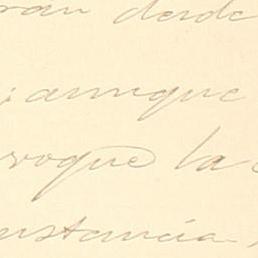 ran desde
; aunque
voque la
nstancia